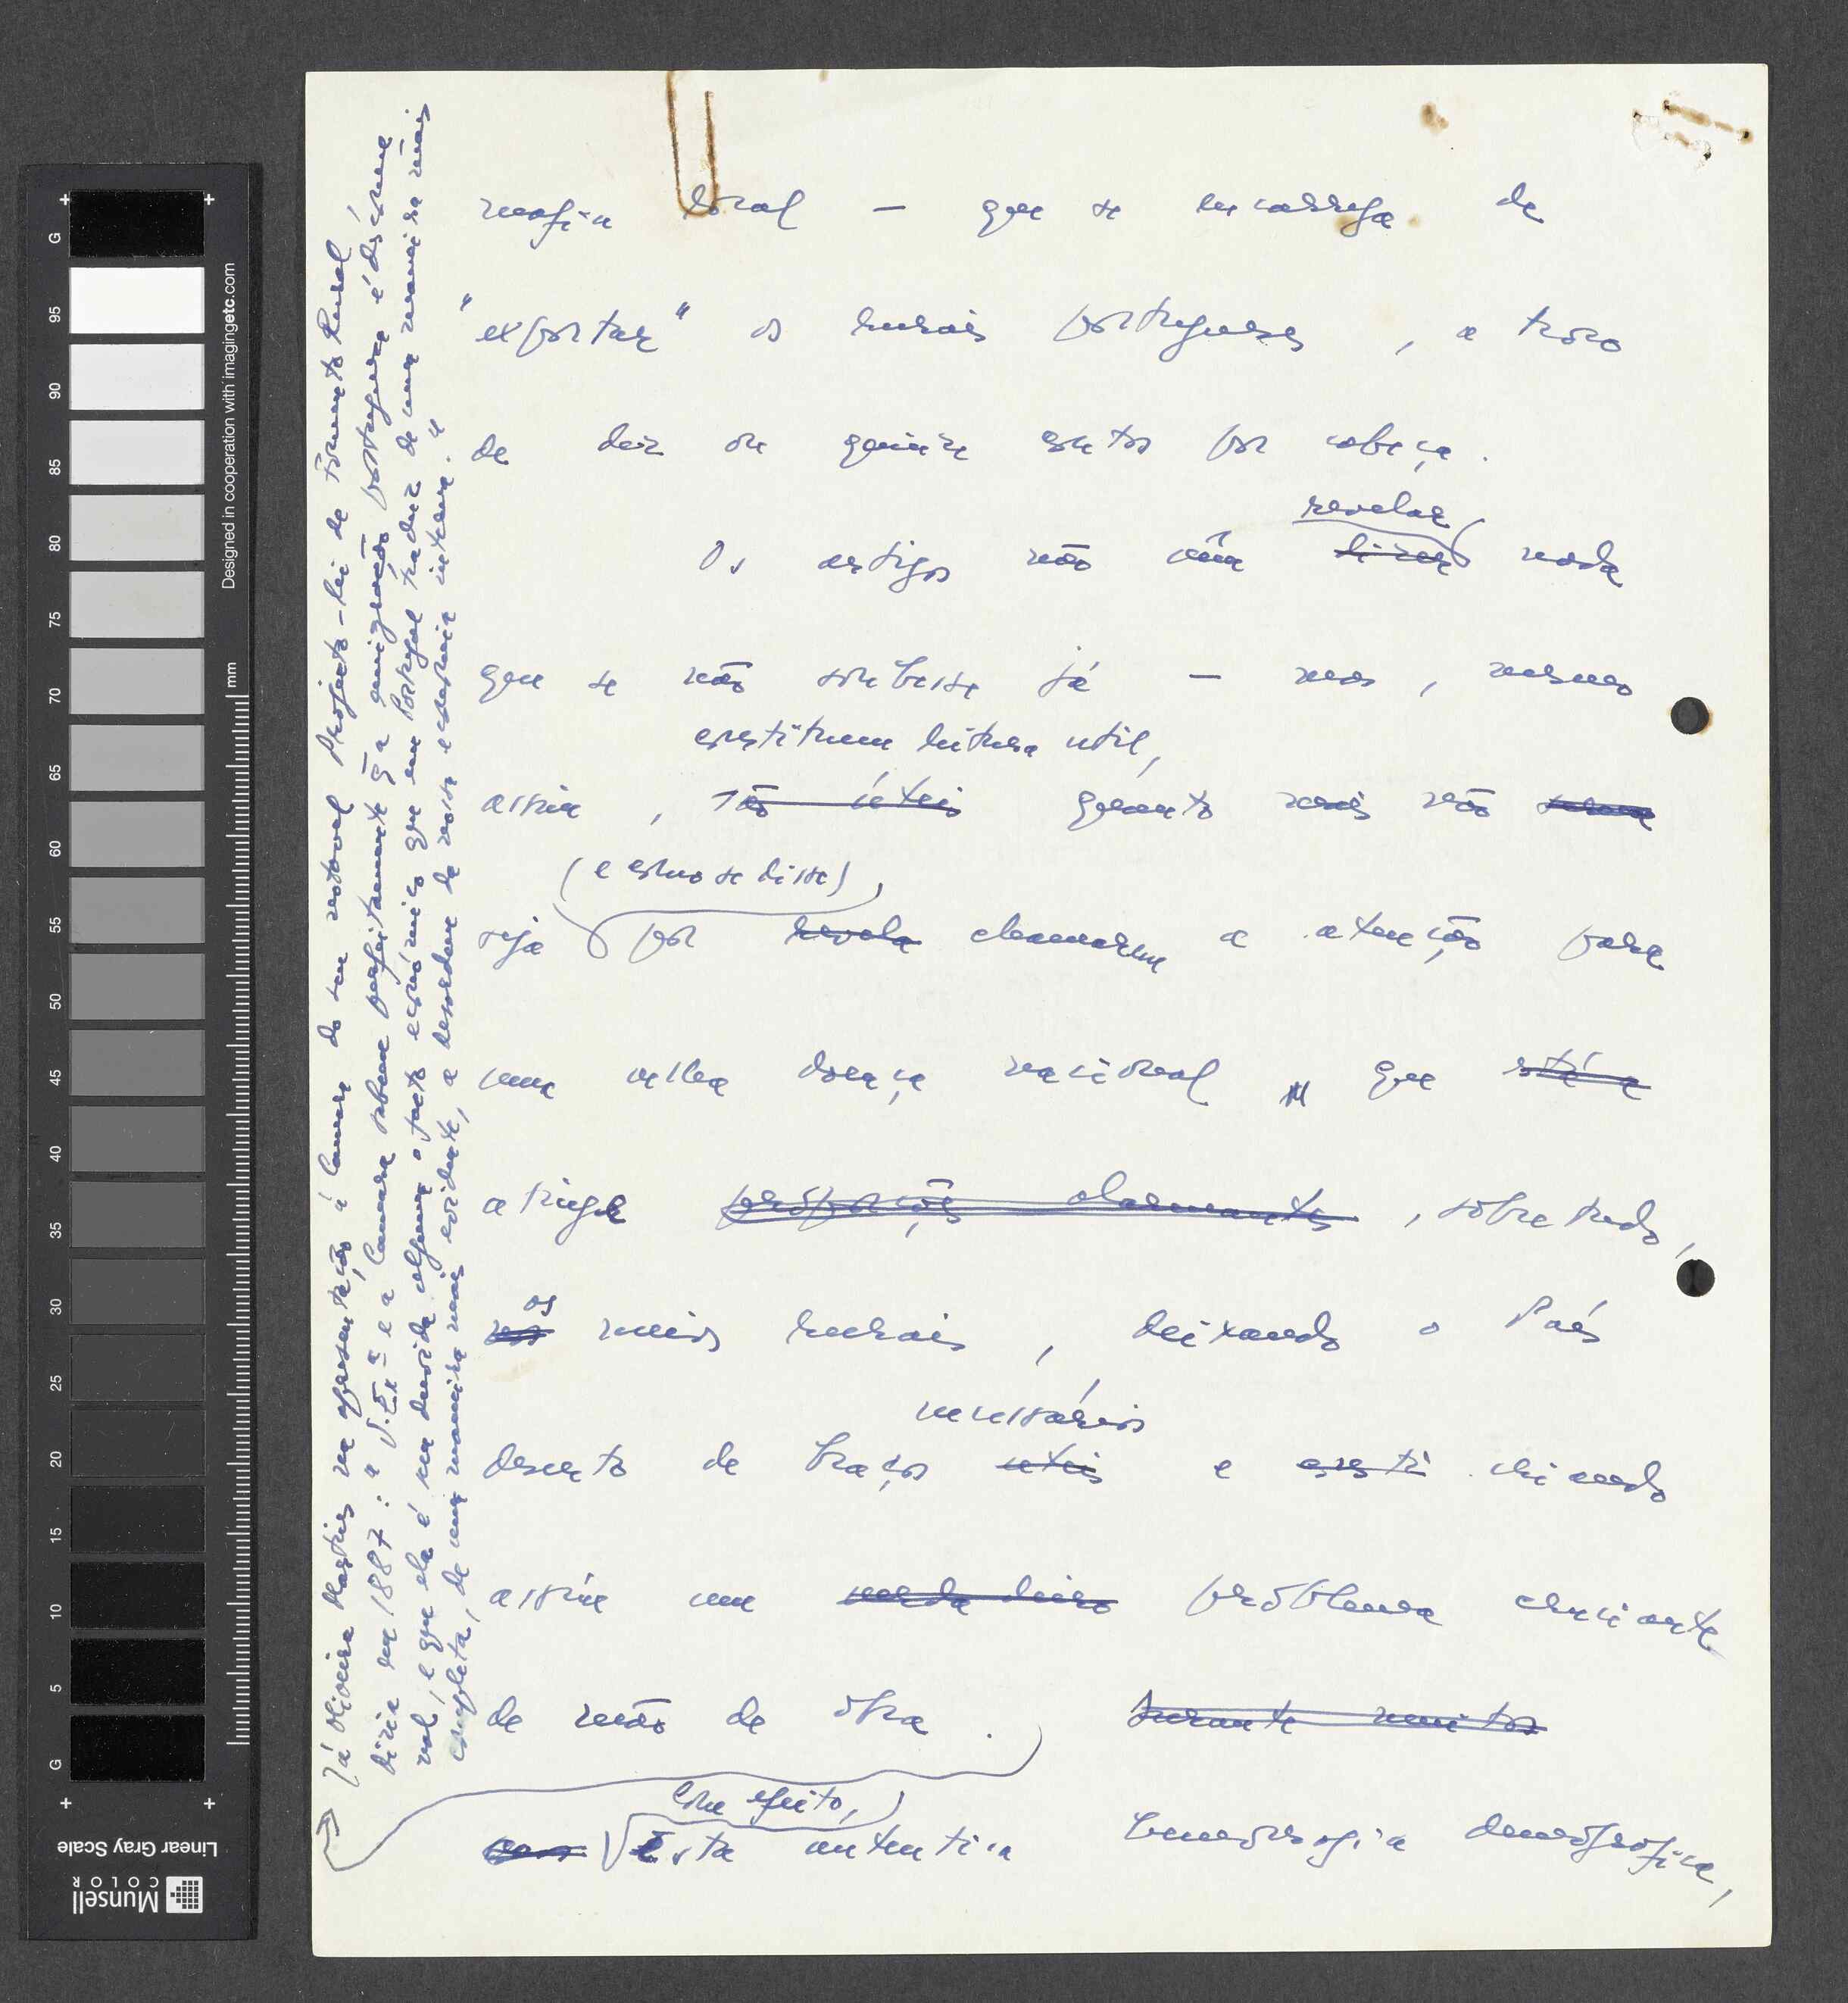 mafia local — que se encarrega de
"exportar" os rurais portugueses, a troco
de dez ou quinze contos por cabeça.
revelar
Os artigos não vêm dizer nada
que se não soubesse já — mas, mesmo
constituem leitura util,
assim, são úteis quanto mais não
(e como se disse),
seja por revela chamarem a atenção para
uma velha doença nacional que está a
atinge proporções alarmantes, sobretudo,
os
nos meios rurais, deixando o País
necessários
deserto de braços uteis e consti criando
assim um verdadeiro problema cruciante
de mão de obra. Durante muitos
Com efeito,
Esta autentica hemorragia demográfica,
Já Oliveira Martins na apresentação à Camara do seu notavel Projecto-lei de Fomento Rural
dizia em 1887: "a V. Exª e a Camara sabem perfeitamente q̄ a emigração portuguesa é dos crime
val, e que ela é sem duvida alguma o facto económico que em Portugal traduz de uma maneira mais
completa, de uma maneira mais evidente, a desordem da nossa economia interna."
G 95 90 85 80 75 70 65 60 55 50 45 40 35 30 25 20 15 10 5 G
mm
Designed in cooperation with imagingetc.com
Linear Gray Scale
Munsell
COLOR